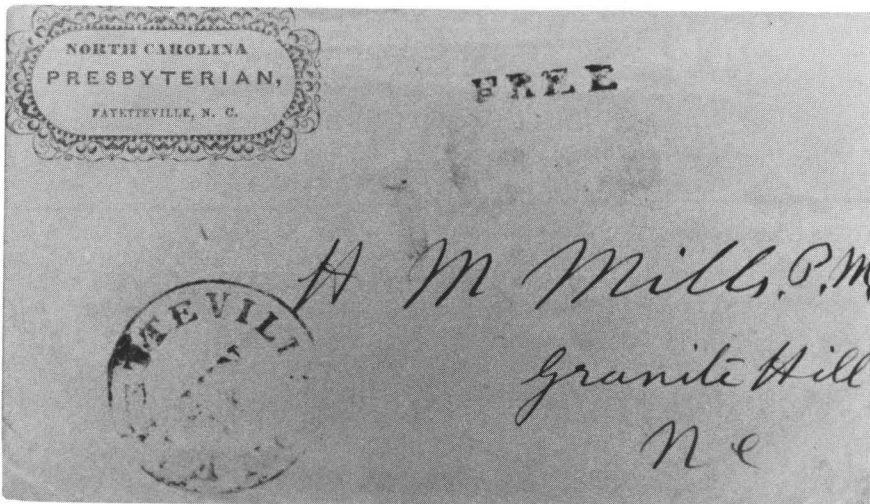 NORTH CAROLINA
PRESBYTERIAN,
FAYETTEVILLE, N. C.
FREE
H M Mills, P.M
Granite Hill
N C